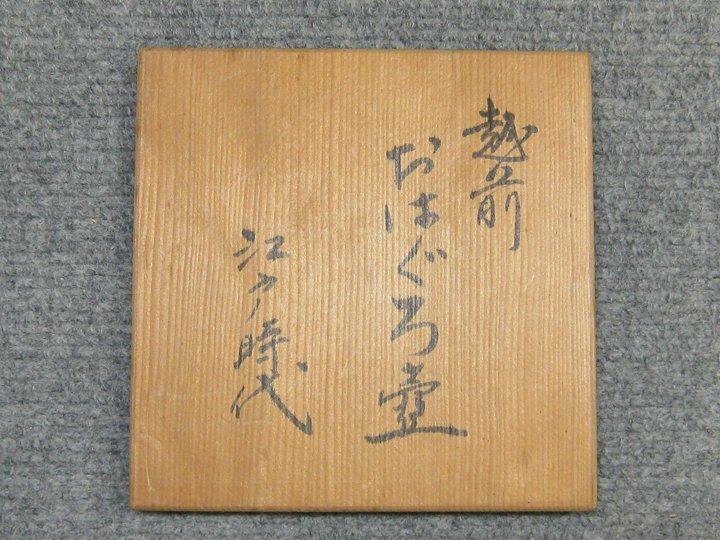 越前
おはぐろ壷
江戸時代